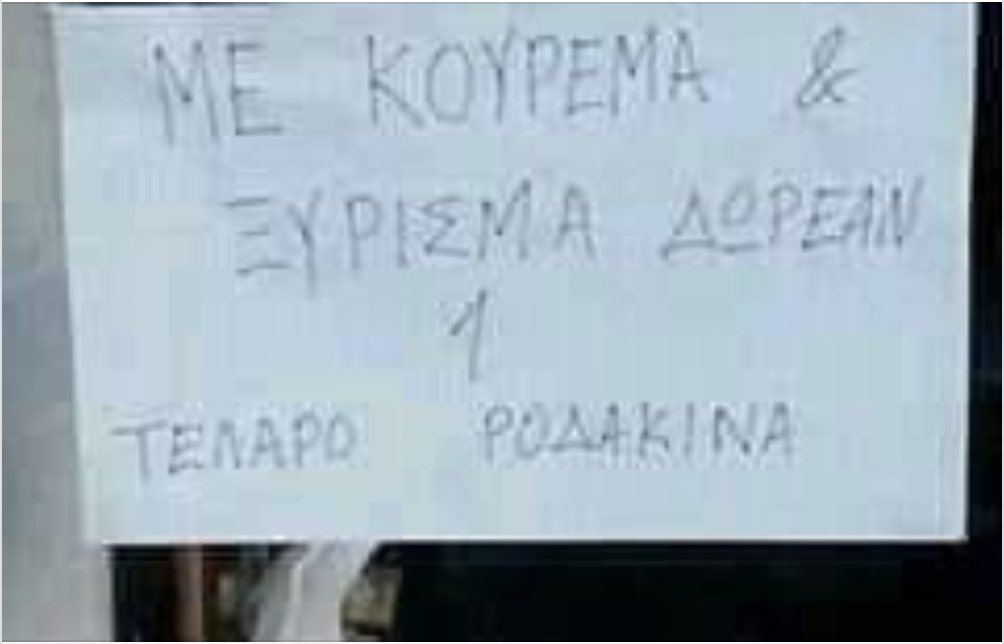 ΜΕ ΚΟΥΡΕΜΑ &
ΞΥΡΙΣΜΑ ΔΩΡΕΑΝ
1
ΤΕΛΑΡΟ ΡΟΔΑΚΙΝΑ